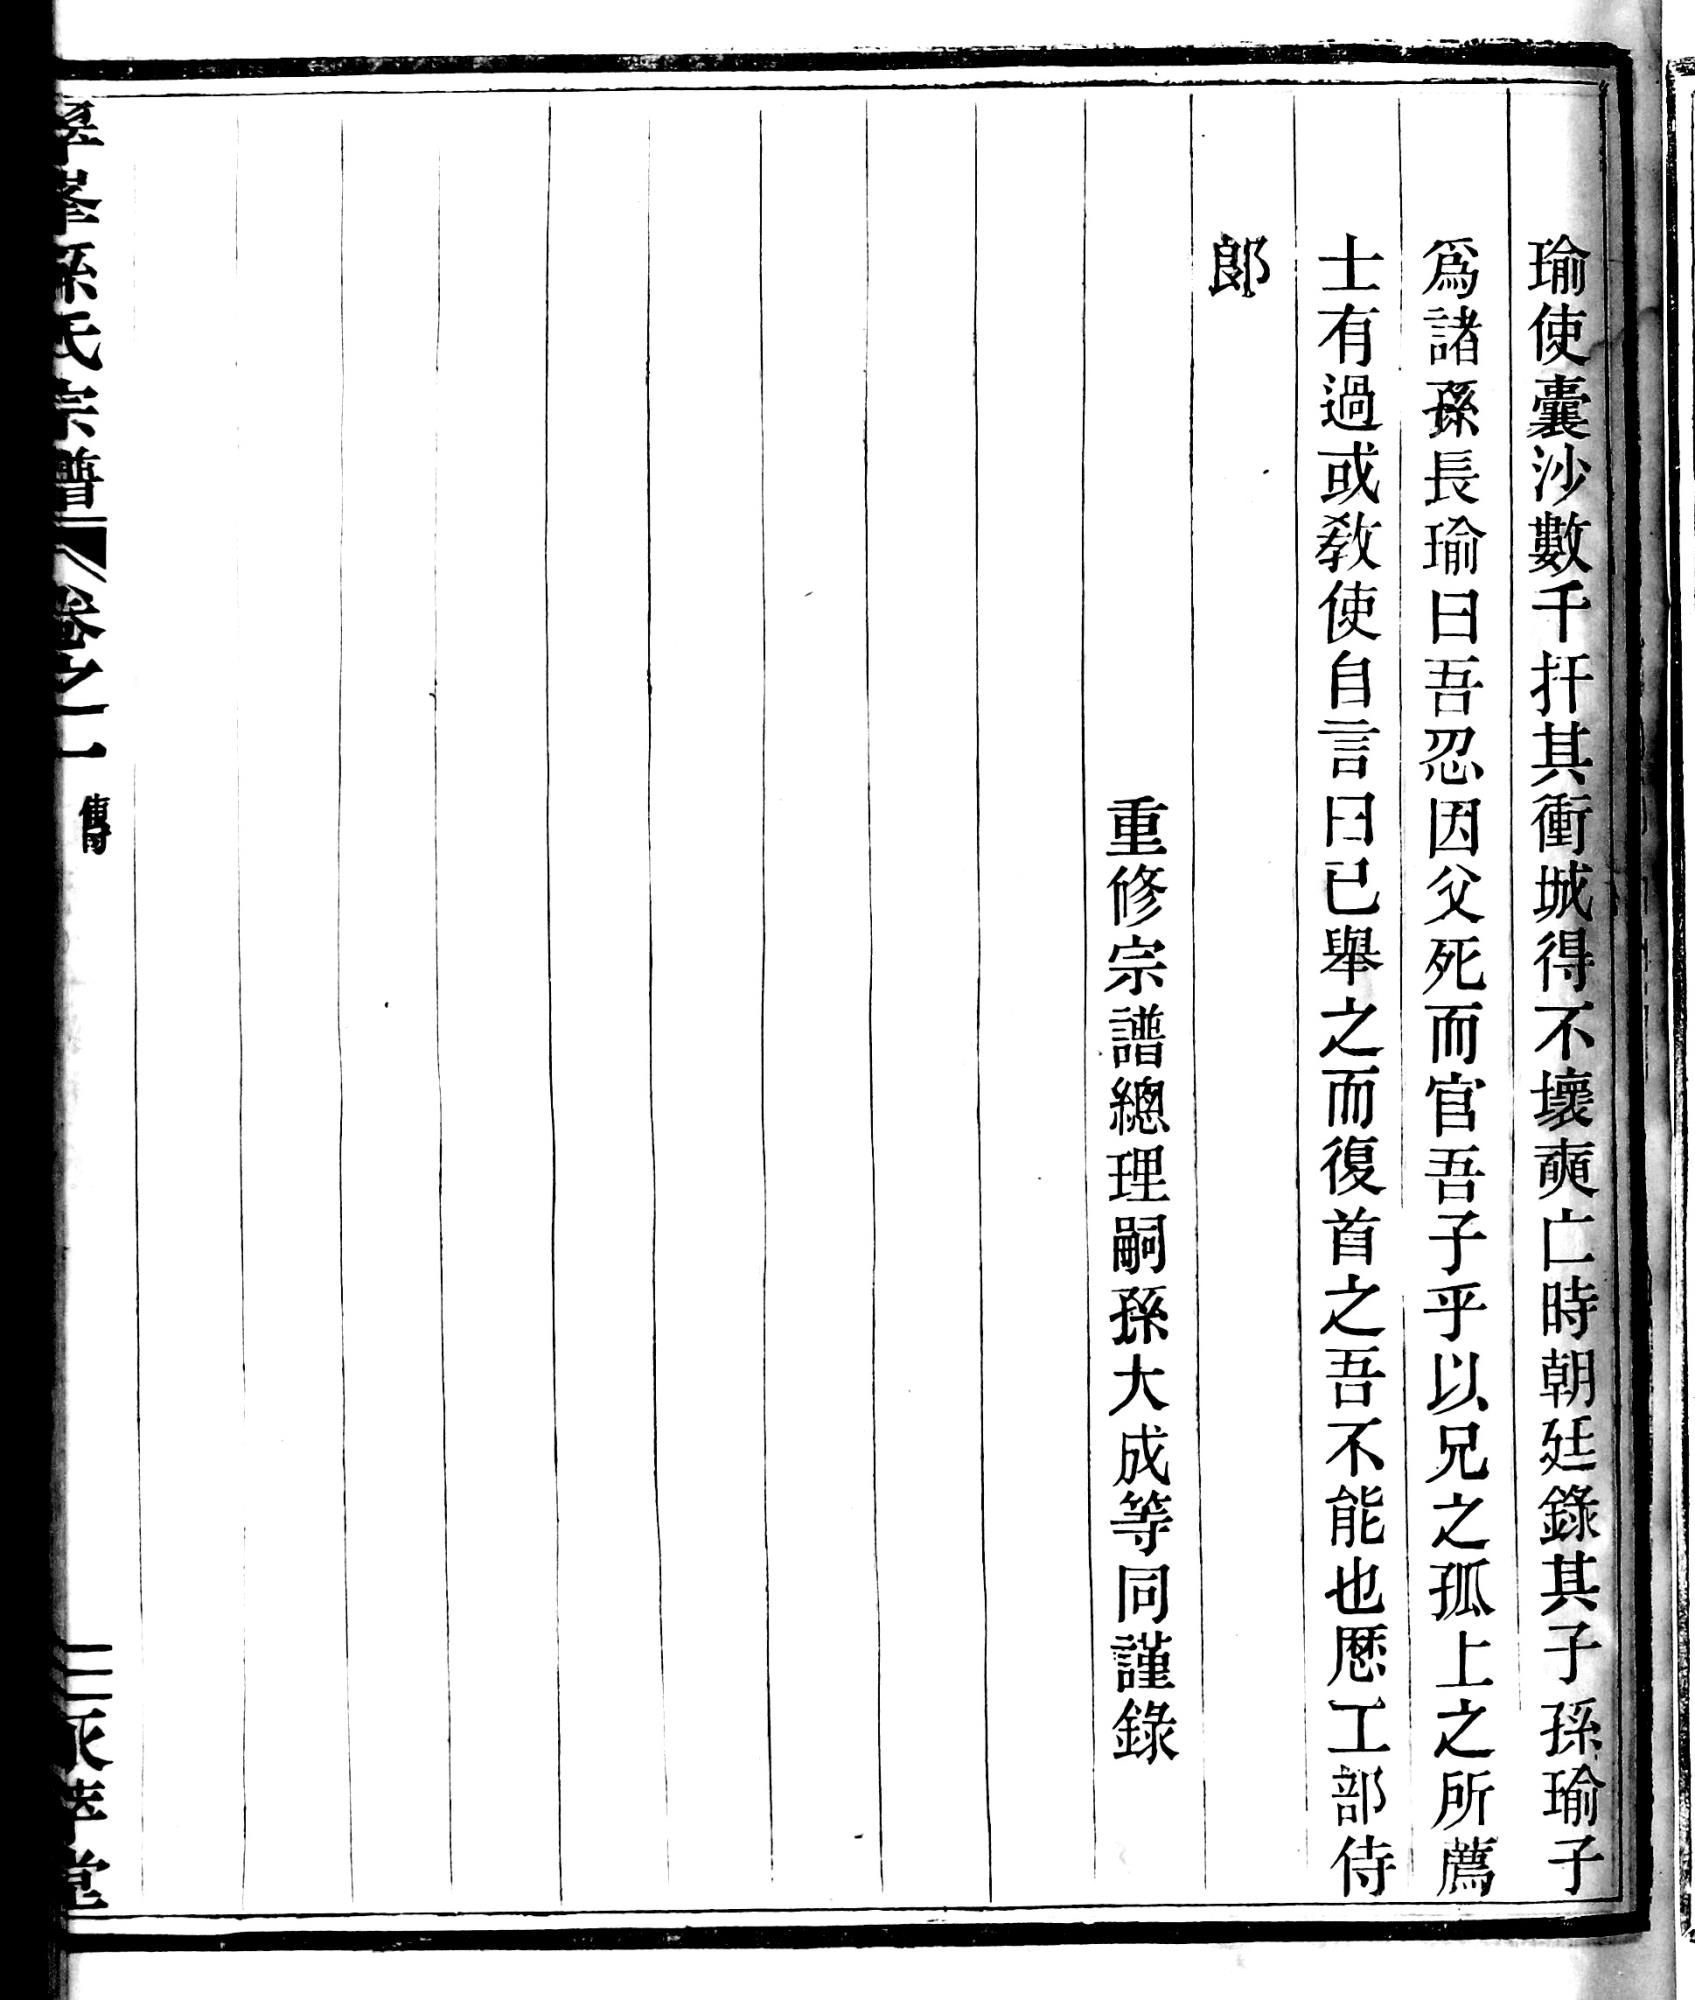 瑜使囊沙數千扞其衝城得不壞奭亡時朝廷錄其子孫瑜子
爲諸孫長瑜曰吾忍因父死而官吾子乎以兄之孤上之所薦
士有過或敎使自言曰已舉之而復首之吾不能也厯工部侍
郞
重修宗譜總理嗣孫大成等同謹錄
峯孫氏宗譜
卷之一
傳
堂